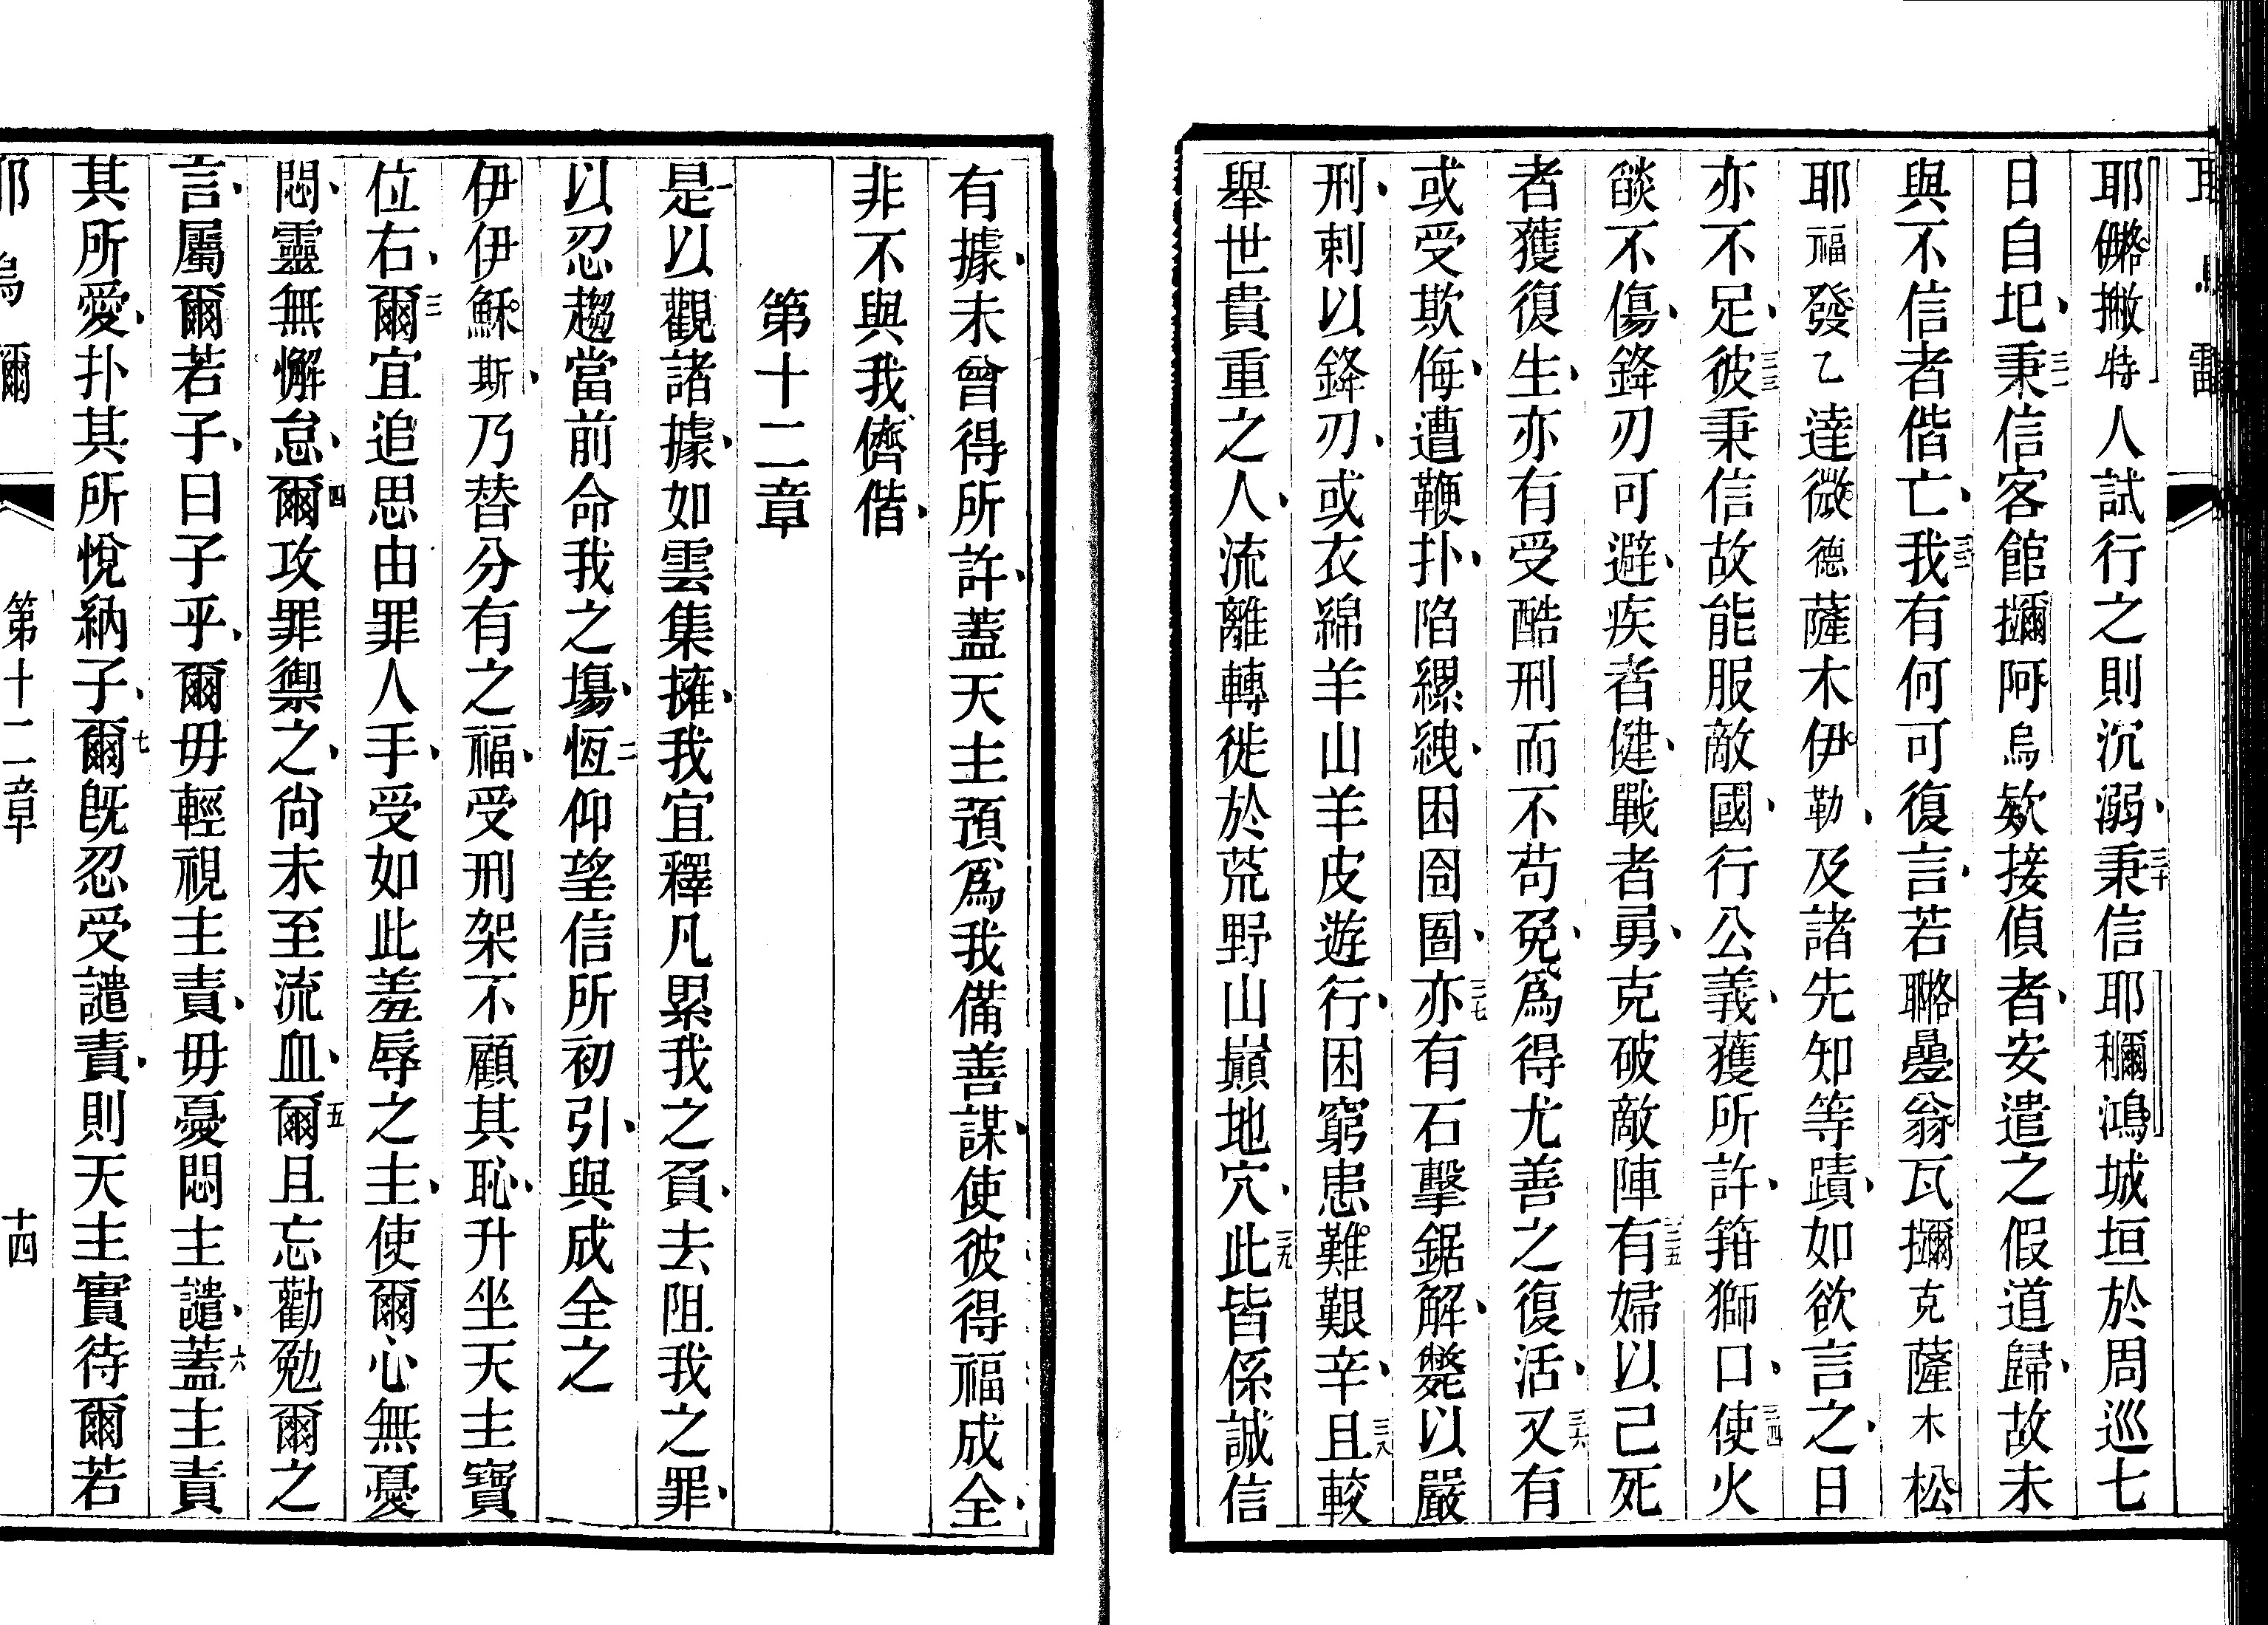 耶𠌥撇特人試行之則沉溺、三十秉信耶穪鴻城垣於周巡七
日自圮、三一秉信客館擟阿烏欸接偵者、安遣之假道歸、故未
與不信者偕亡、三二我有何可復言、若聮疊翁瓦擟克薩木松
耶福發乙達微德薩木伊勒、及諸先知等蹟、如欲言之、日
亦不足、三三彼秉信故能服敵國、行公義、獲所許、箝獅口、三四使火
燄不傷、鋒刃可避、疾者健、戰者勇、克破敵陣三五有婦以己死
者獲復生、亦有受酷刑而不苟免、爲得尤善之復活、三六又有
或受欺侮、遭鞭扑、陷縲絏、困囹圄、三七亦有石擊鋸解、斃以嚴
刑、刺以鋒刃、或衣綿羊山羊皮遊行、困窮患難艱辛、三八且較
舉世貴重之人、流離轉徙於荒野山巔地穴、三九此皆係誠信
有據、未曾得所許、蓋天主預爲我備善謀、使彼得福成全、
非不與我儕偕、
第十二章
一是以觀諸據、如雲集擁、我宜釋凡累我之負、去阻我之罪、
以忍趨當前命我之塲、二恆仰望信所初引、與成全之
伊伊穌斯、乃替分有之福、受刑架不顧其恥、升坐天主寶
位右、三爾宜追思由罪人手、受如此羞辱之主、使爾心無憂
悶、靈無懈怠、四爾攻罪禦之、尚未至流血、五爾且忘勸勉爾之
言、屬爾若子、曰子乎、爾毋輕視主責、毋憂悶主譴、六蓋主責
其所愛、扑其所悅納子、七爾旣忍受譴責、則天主實待爾若
第十二章
十四